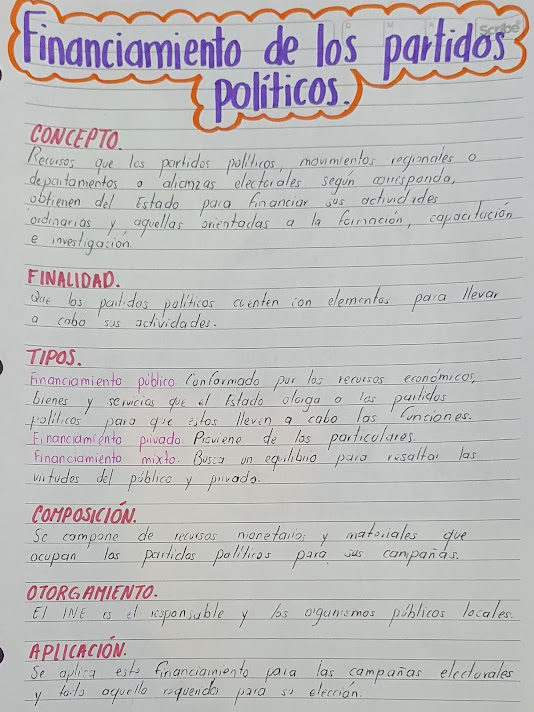 Scribe
Financiamiento de los partidos
políticos.
CONCEPTO.
Recursos que los partidos políticos, movimientos regionales o
departamentos o alianzas electorales según corresponda,
obtienen del Estado para financiar sus actividades
ordinarias y, aquellas orientadas a la formación, capacitación
e investigación.
FINALIDAD.
Que los partidos políticos cuenten con elementos para llevar
a cabo sus actividades.
TIPOS.
Financiamiento público. Conformado por los recursos económicos,
bienes y servicios que el Estado otorga a los partidos
políticos para que estos lleven a cabo las funciones.
Financiamiento privado. Proviene de los particulares.
Financiamiento mixto. Busca un equilibrio para resaltar las
virtudes del público y privado.
COMPOSICIÓN.
Se compone de recursos monetarios y materiales que
ocupan los partidos políticos para sus campañas.
OTORGAMIENTO.
El INE es el responsable y los organismos públicos locales.
APLICACIÓN.
Se aplica este financiamiento para las campañas electorales
y todo aquello requerido para su elección.